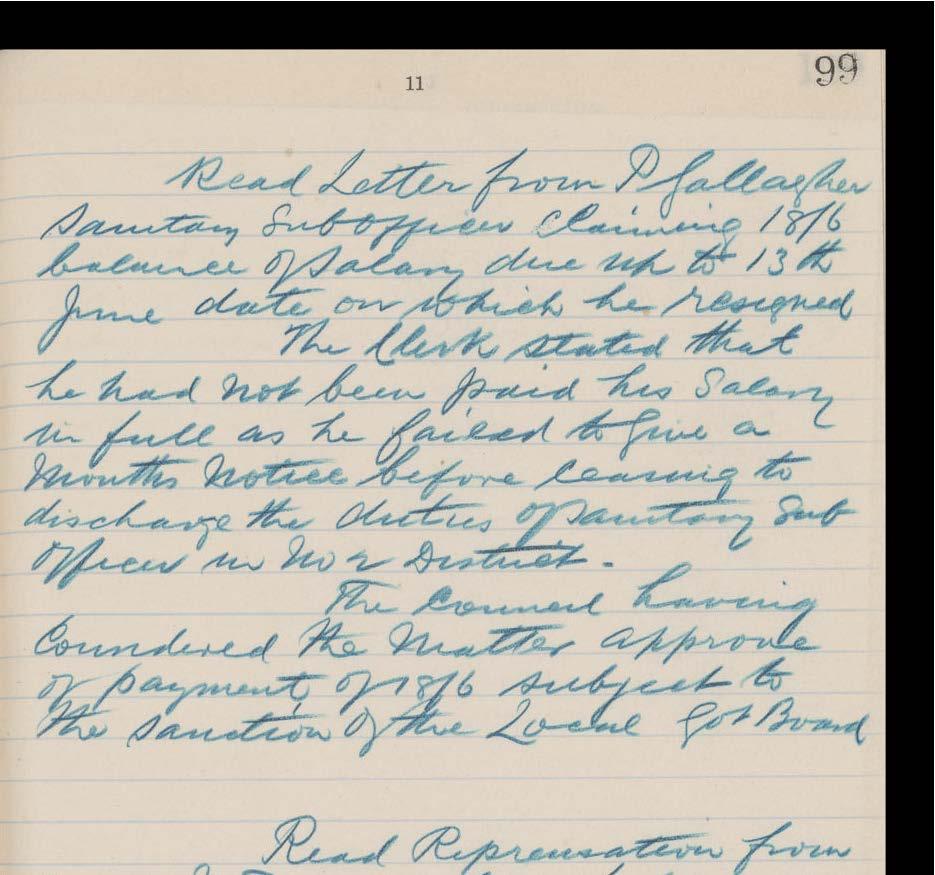 11
99
Read Letter from P Gallagher
Sanitary Sub Officer Claiming 18/6
balance of Salary due up to 13th
June date on which he resigned
The Clerk stated that
he had not been paid his Salary
in full as he failed to give a
Months Notice before leaving to
discharge the duties of Sanitary Sub
Officer in No 2 District.
The Council having
Considered the Matter approve
of payment of 18/6 subject to
the sanction of the Local Got Board
Read Reprensation from